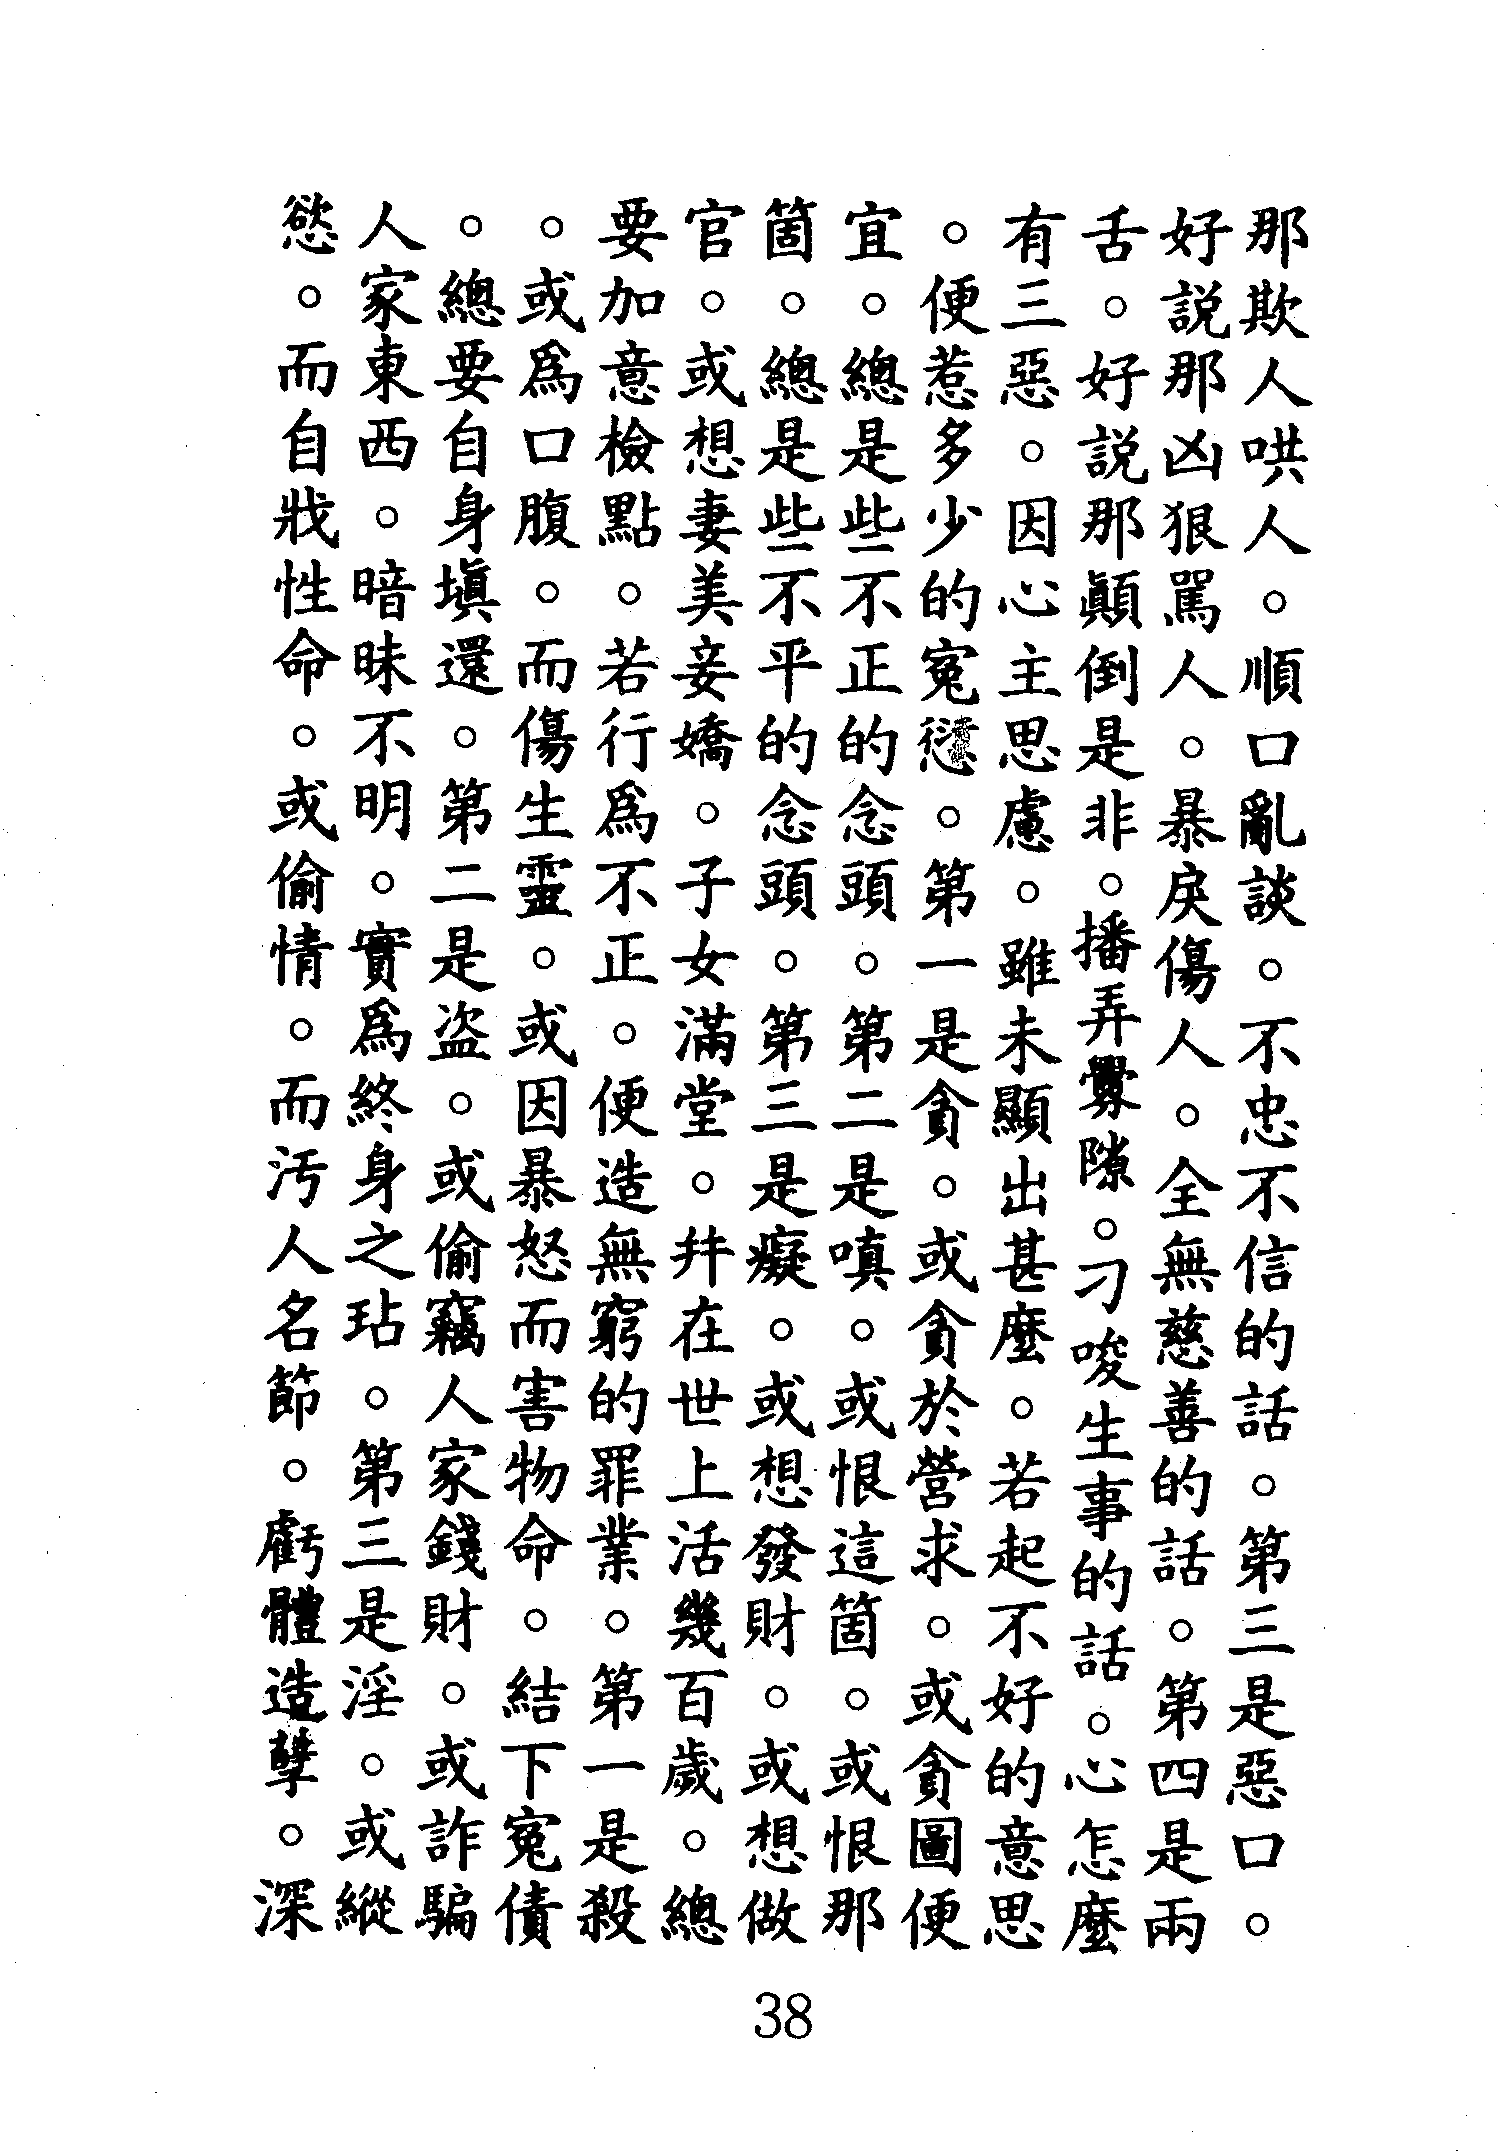 那欺人哄人。順口亂談。不忠不信的話。第三是惡口。
好説那凶狠駡人。暴戾傷人。全無慈善的話。第四是兩
舌。好説那顛倒是非。播弄釁隙。刁唆生事的話。心怎麼
有三惡。因心主思慮。雖未顯出甚麼。若起不好的意思
。便惹多少的寃愆。第一是貪。或貪於營求。或貪圖便
宜。總是些不正的念頭。第二是嗔。或恨這箇。或恨那
箇。總是些不平的念頭。第三是癡。或想發財。或想做
官。或想妻美妾嬌。子女滿堂。并在世上活幾百歲。總
要加意檢點。若行爲不正。便造無窮的罪業。第一是殺
。或爲口腹。而傷生靈。或因暴怒而害物命。結下寃債
。總要自身塡還。第二是盜。或偷竊人家錢財。或詐騙
人家東西。暗昧不明。實爲終身之玷。第三是淫。或縱
慾。而自戕性命。或偷情。而汚人名節。虧體造孽。深
38